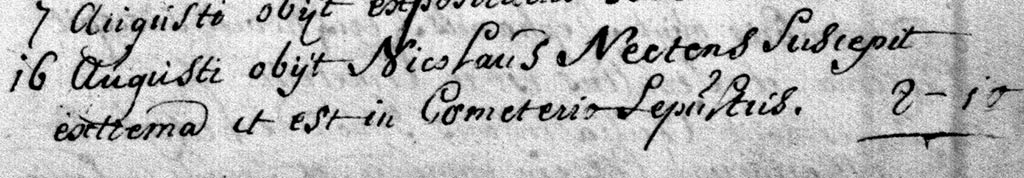 7 Augusti obijt
16 Augusti obijt Nicolaus Nectens Suscepit
extrema et est in Cometerio Sepultus. 2 - 10